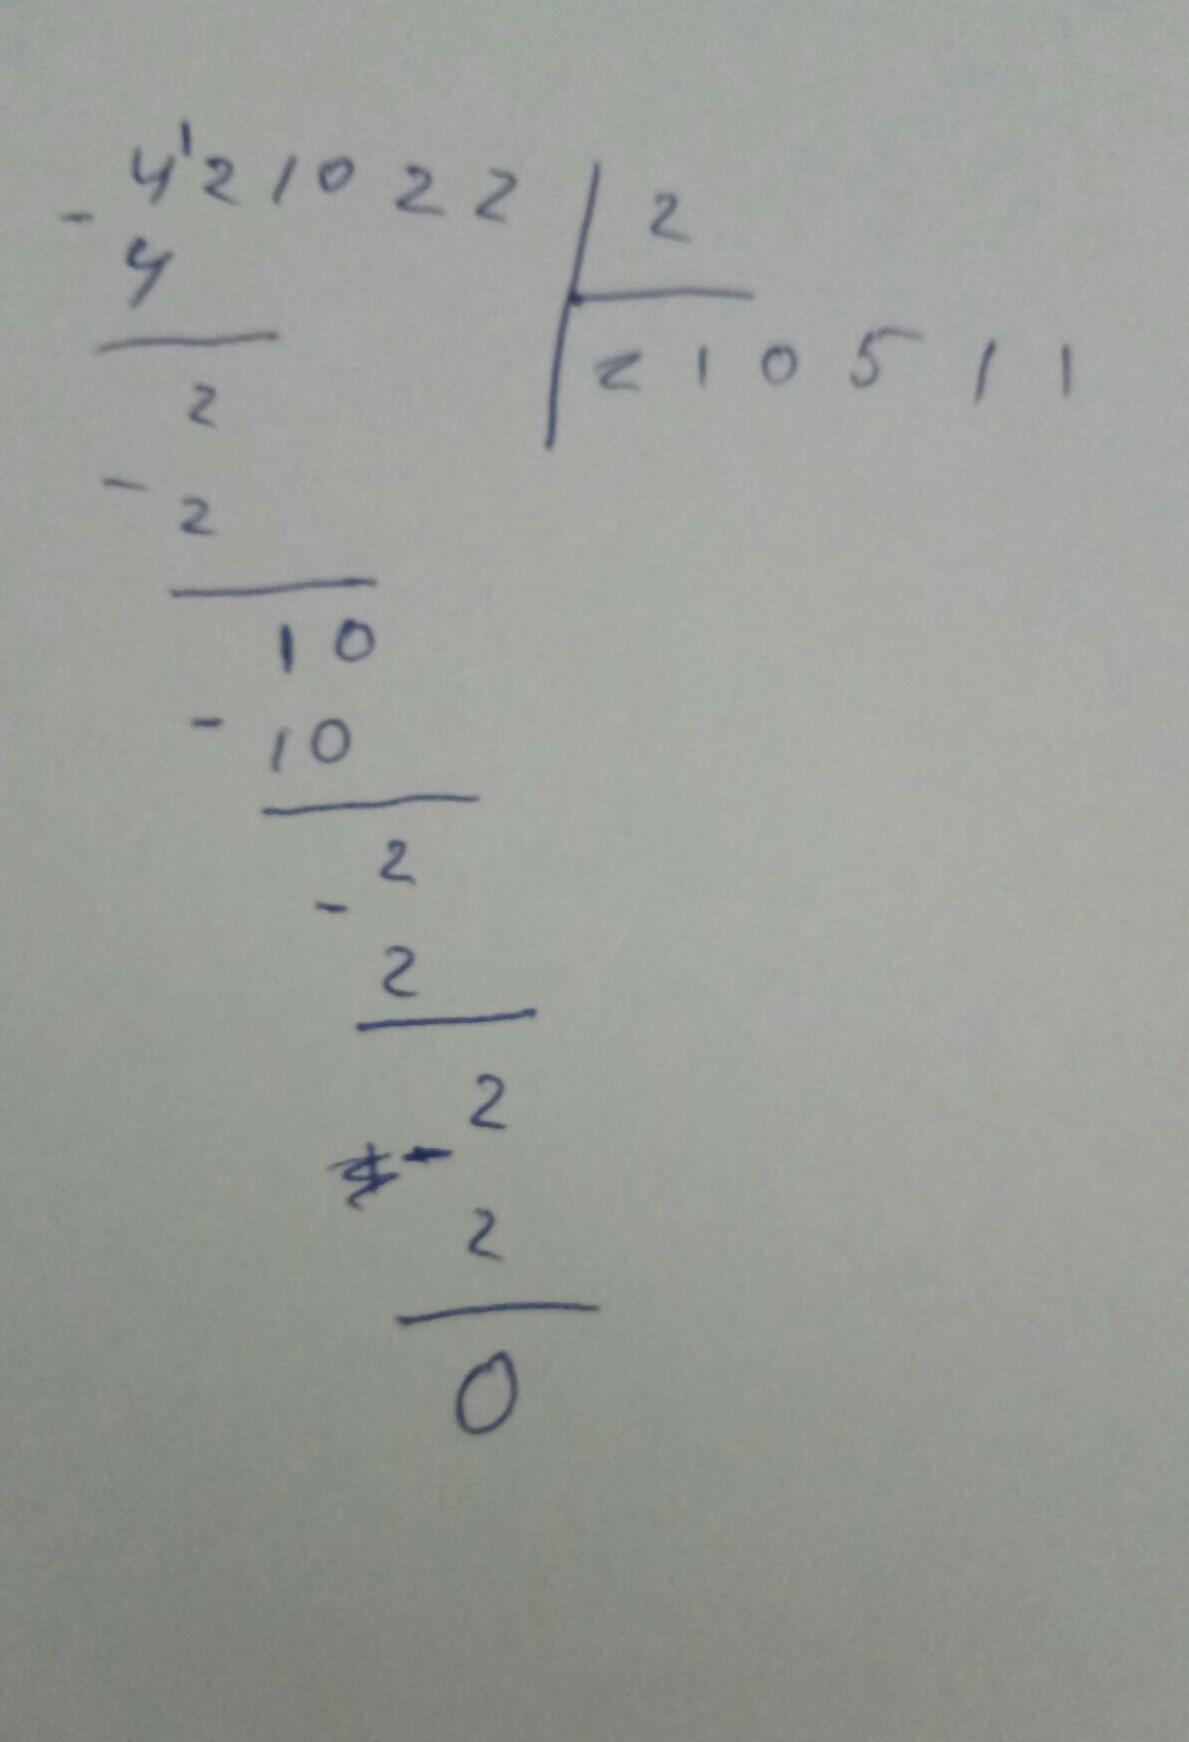 4'21022 2
- 4
210511
2
- 2
10
- 10
2
-
2
2
-
2
0